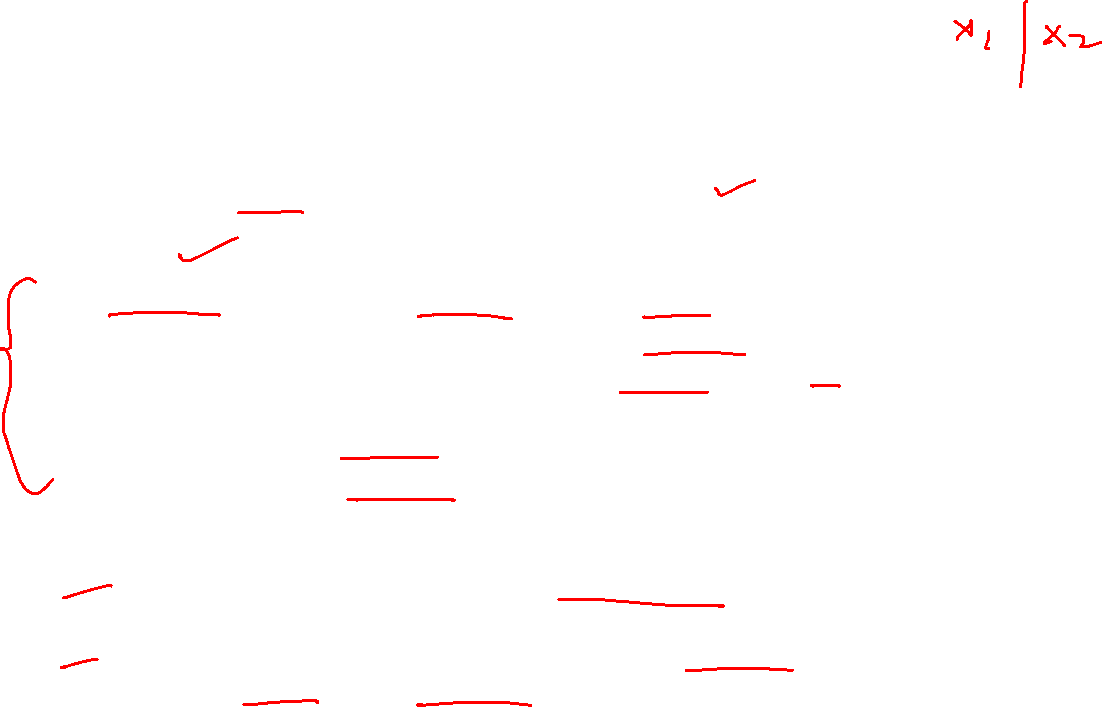 x₁ | x₂